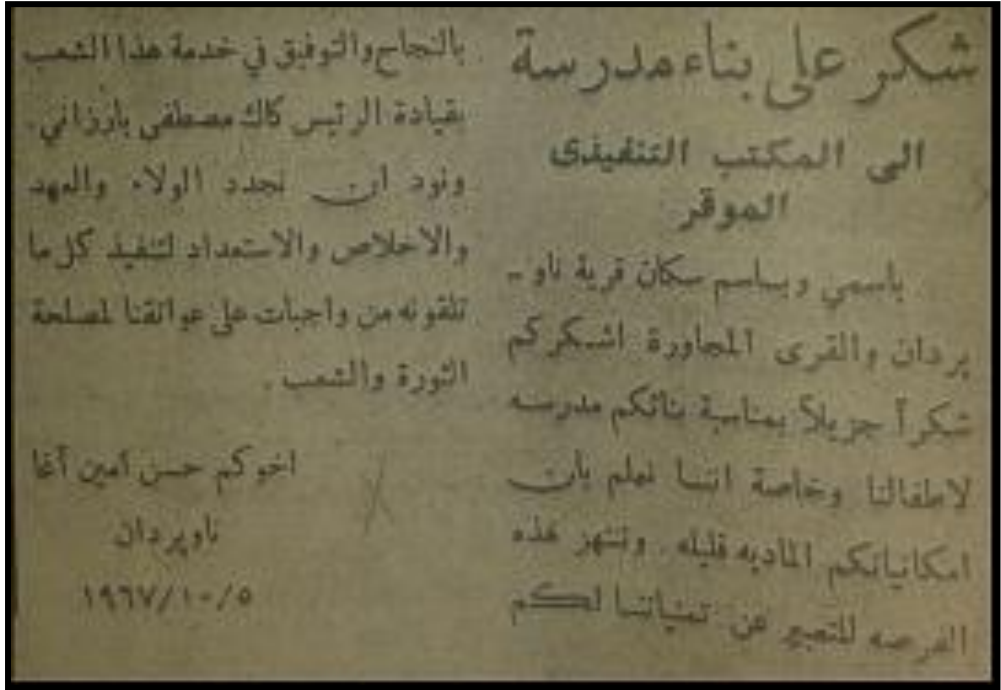 شكر على بناء مدرسة
الى المكتب التنفيذى
الموقر
باسمي وباسم سكان قرية ناو -
پردان والقرى المجاورة اشكركم
شكراً جزيلاً بمناسبة بنائكم مدرسه
لاطفالنا وخاصة اننا نعلم بأن
امكانياتكم الماديه قليله . وننتهز هذه
الفرصه للتعبير عن تمنياتنا لكم
بالنجاح والتوفيق في خدمة هذا الشعب
بقيادة الرئيس كاك مصطفى بارزاني .
ونود ان نجدد الولاء والعهد
والاخلاص والاستعداد لتنفيذ كل ما
تلقونه من واجبات على عواتقنا لمصلحة
الثورة والشعب .
اخوكم حسن أمين آغا
ناوپردان
١٩٦٧/١٠/٥